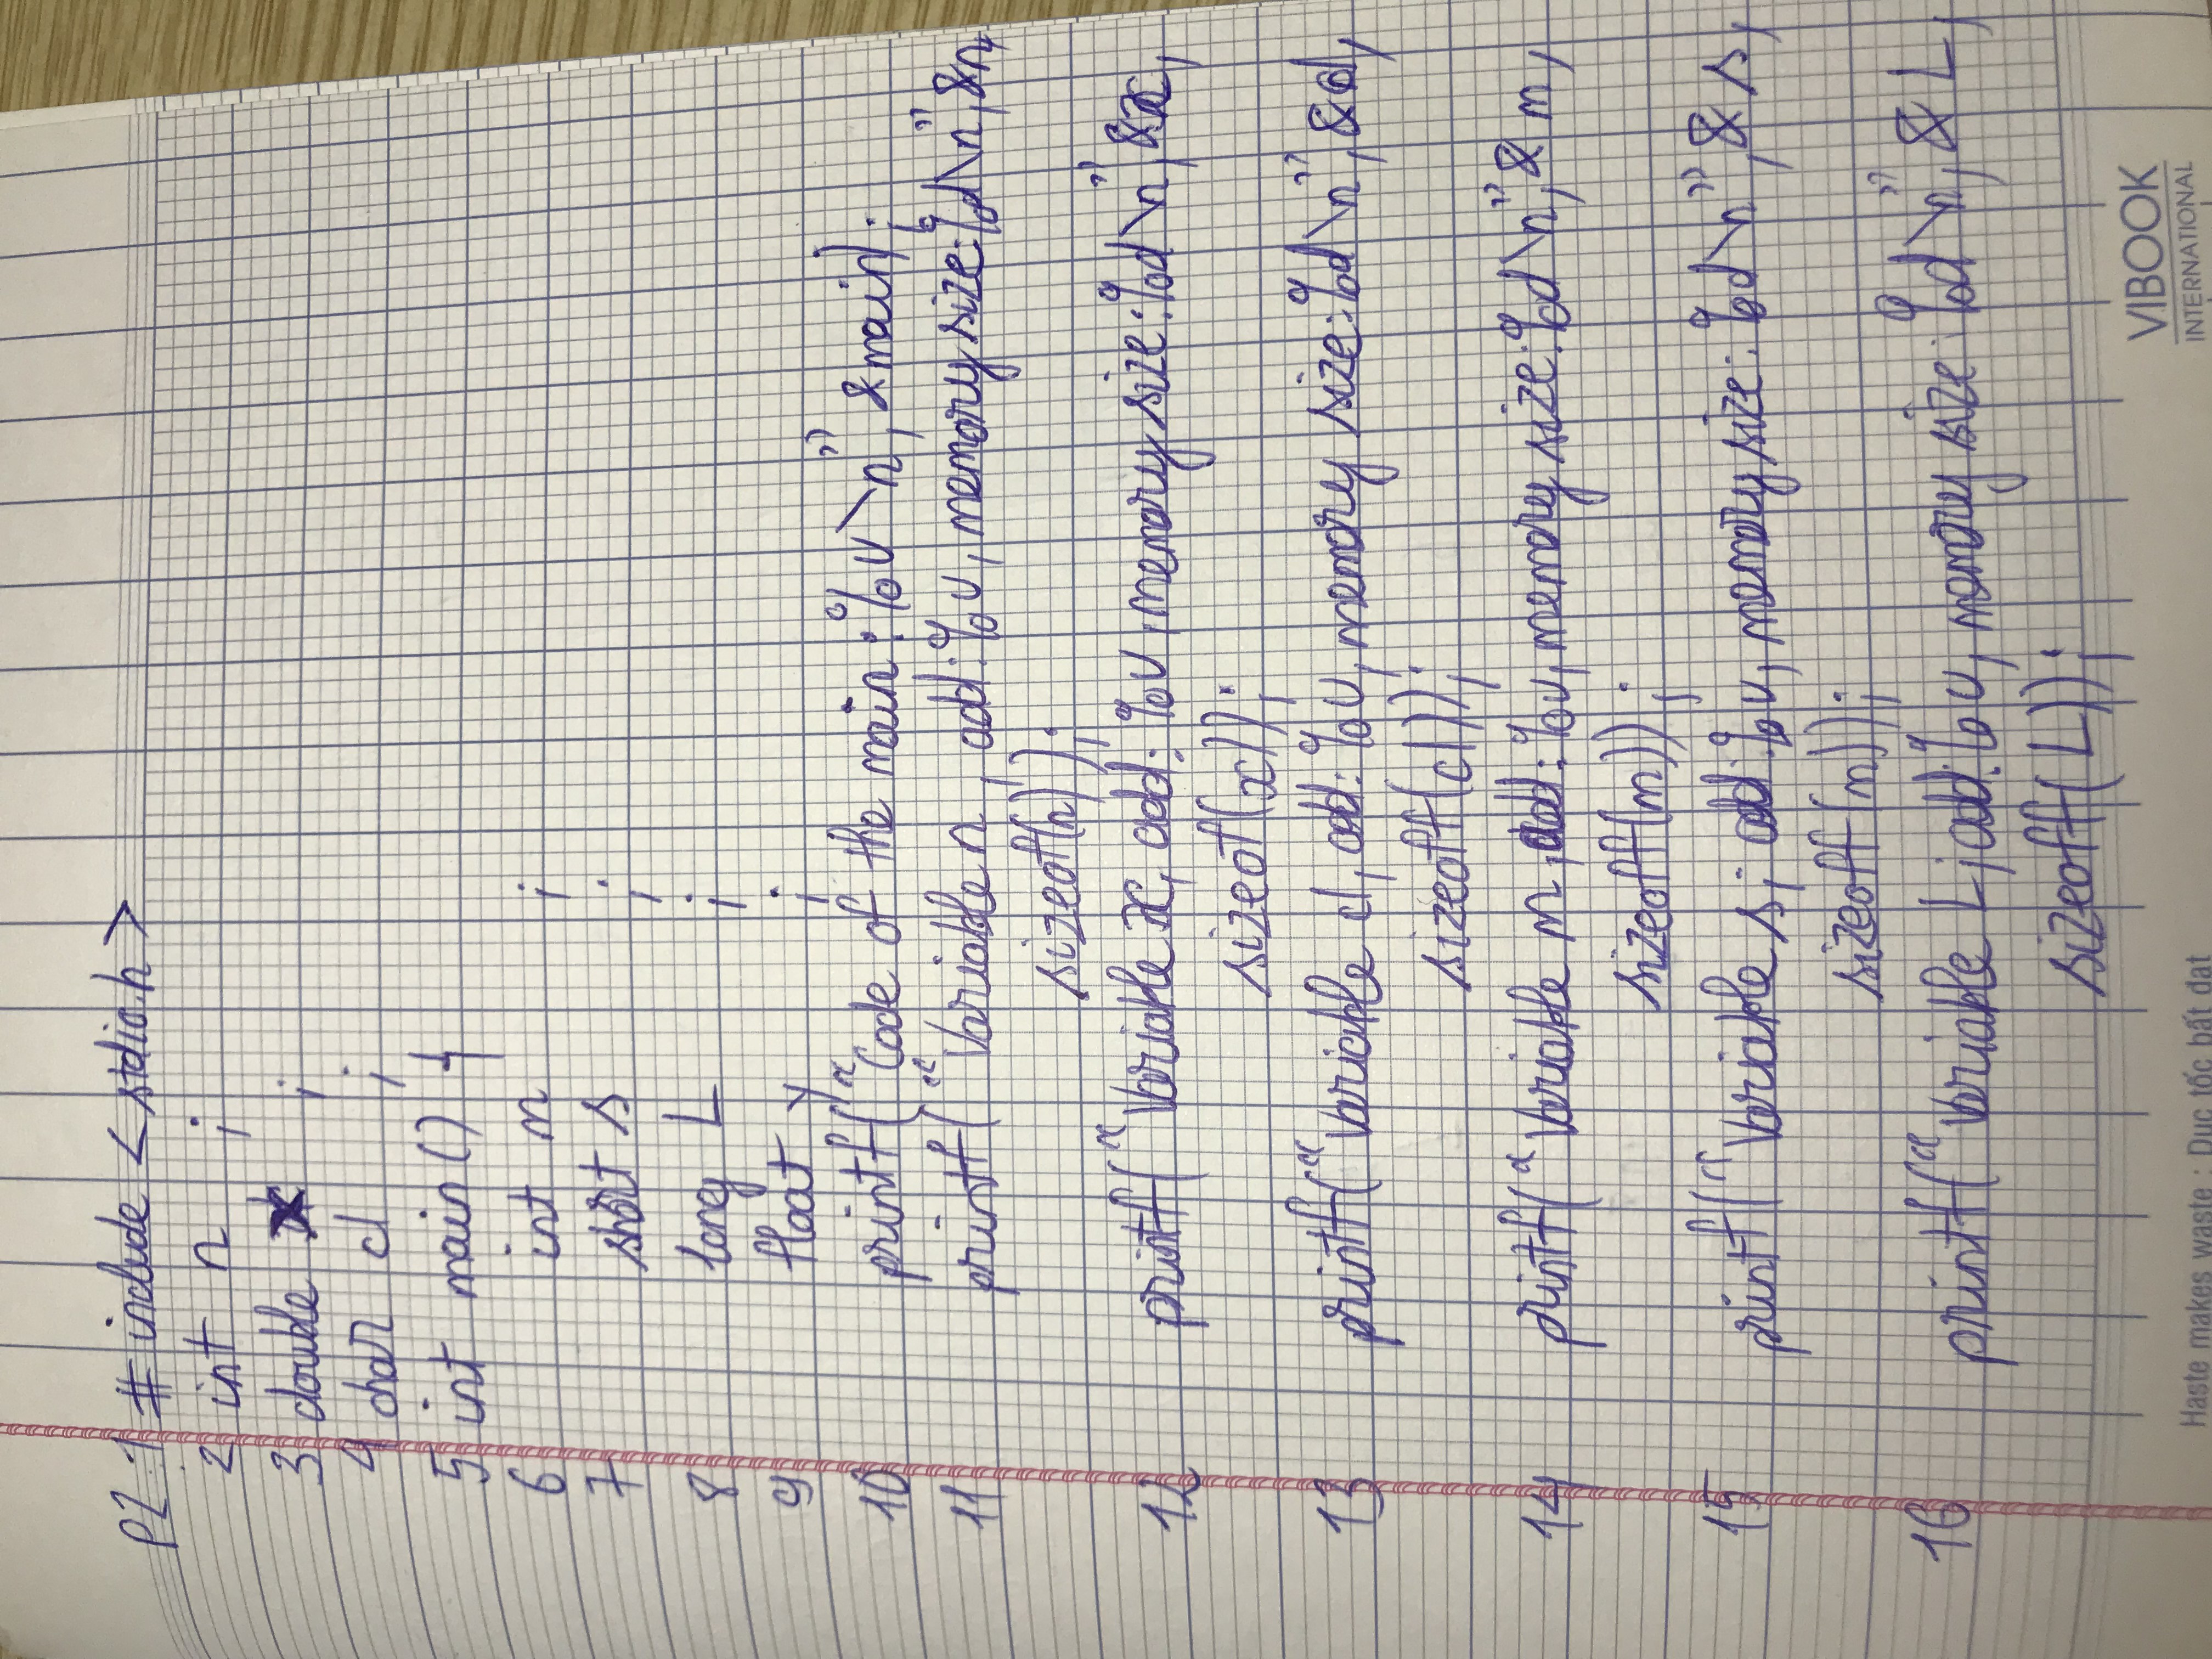 P2 1 # include <stdio.h>
2 int n ;
3 double x ;
4 char cl ;
5 int main() {
6 int m ;
7 short s ;
8 long L ;
9 float y ;
10 printf("Code of the main:%u\n", &main);
11 printf("Variable n, add:%u, memory size:%d\n", &n,
sizeof(n));
12 printf("Variable x, add:%u, memory size:%d\n", &x,
sizeof(x));
13 printf("Variable cl, add:%u, memory size:%d\n", &cl,
sizeoff(cl));
14 printf("Variable m, add:%u, memory size:%d\n", & m,
sizeoff(m));
15 printf("Variable s; add:%u, memory size:%d\n", & s,
sizeoff(m));
16 printf("Variable L; add:%u, memory size:%d\n", & L,
sizeoff(L));
VIBOOK
INTERNATIONAL
Haste makes waste : Dục tốc bất đạt